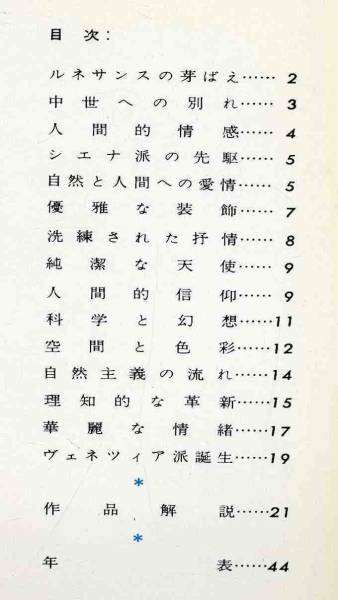 目次:
ルネサンスの芽ばえ……2
中世への別れ……3
人間的情感……4
シエナ派の先駆……5
自然と人間への愛情……5
優雅な装飾……7
洗練された抒情……8
純潔な天使……9
人間的信仰……9
科学と幻想……11
空間と色彩……12
自然主義の流れ……14
理知的な革新……15
華麗な情緒……17
ヴェネツィア派誕生……19
*
作品解説……21
*
年表……44